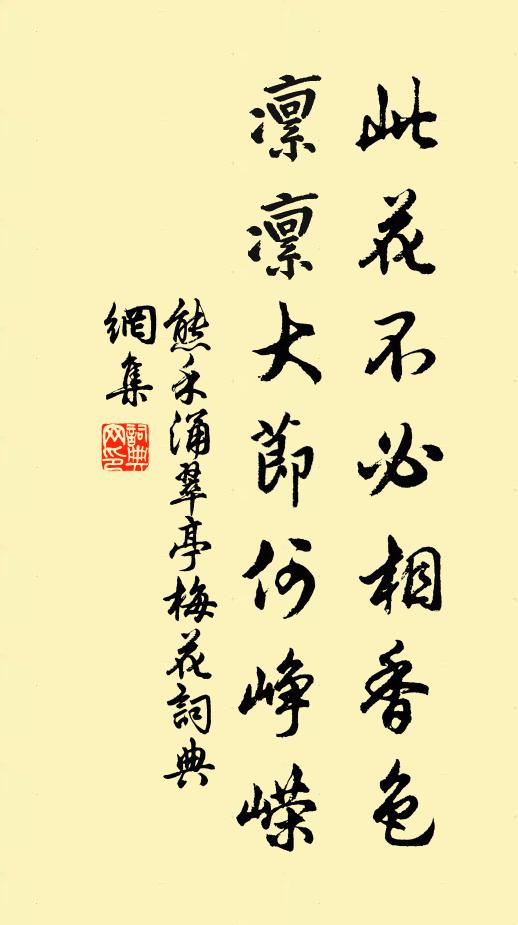 此花不必相香色
凛凛大節何峥嵘
熊禾涌翠亭梅花詞典
網集
詞典網印